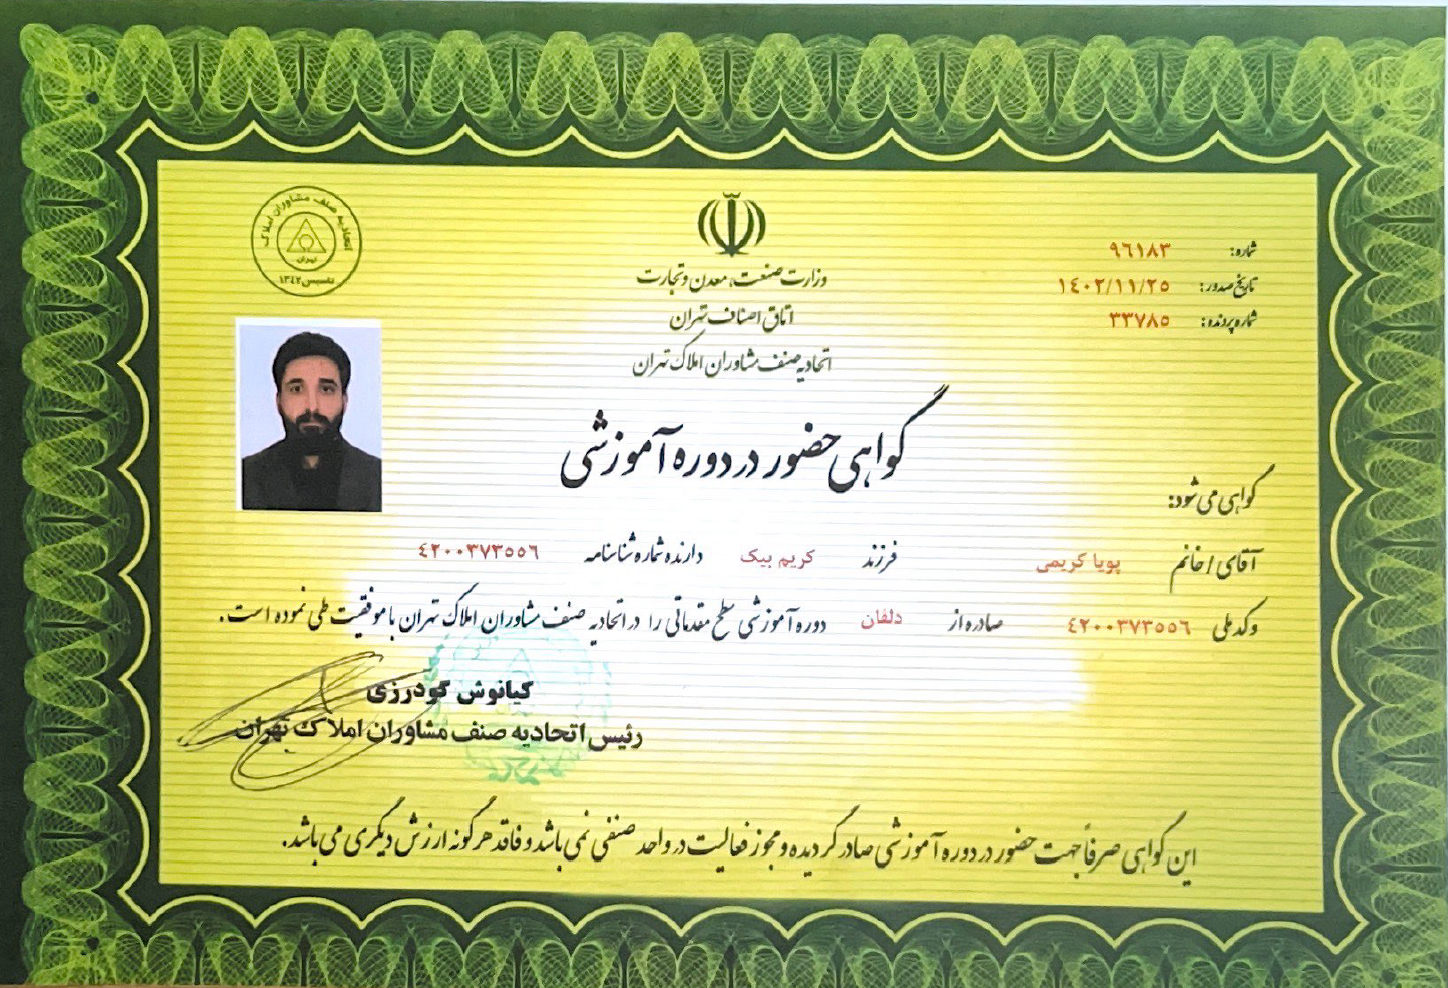 اتحادیه صنف مشاوران املاک
تهران
تاسیس ۱۳۴۲
وزارت صنعت، معدن و تجارت
اتاق اصناف تهران
اتحادیه صنف مشاوران املاک تهران
شماره: ۹۶۱۸۳
تاریخ صدور: ۱۴۰۲/۱۱/۲۵
شماره پرونده: ۳۳۷۸۵
گواهی حضور در دوره آموزشی
گواهی می شود:
آقای / خانم پویا کریمی فرزند کریم بیک دارنده شماره شناسنامه ۴۲۰۰۳۷۳۵۵۶
و کد ملی ۴۲۰۰۳۷۳۵۵۶ صادره از دلفان دوره آموزشی سطح مقدماتی را در اتحادیه صنف مشاوران املاک تهران با موفقیت طی نموده است.
کیانوش گودرزی
رئیس اتحادیه صنف مشاوران املاک تهران
این گواهی صرفاً جهت حضور در دوره آموزشی صادر گردیده و مجوز فعالیت در واحد صنفی نمی باشد و فاقد هرگونه ارزش دیگری می باشد.